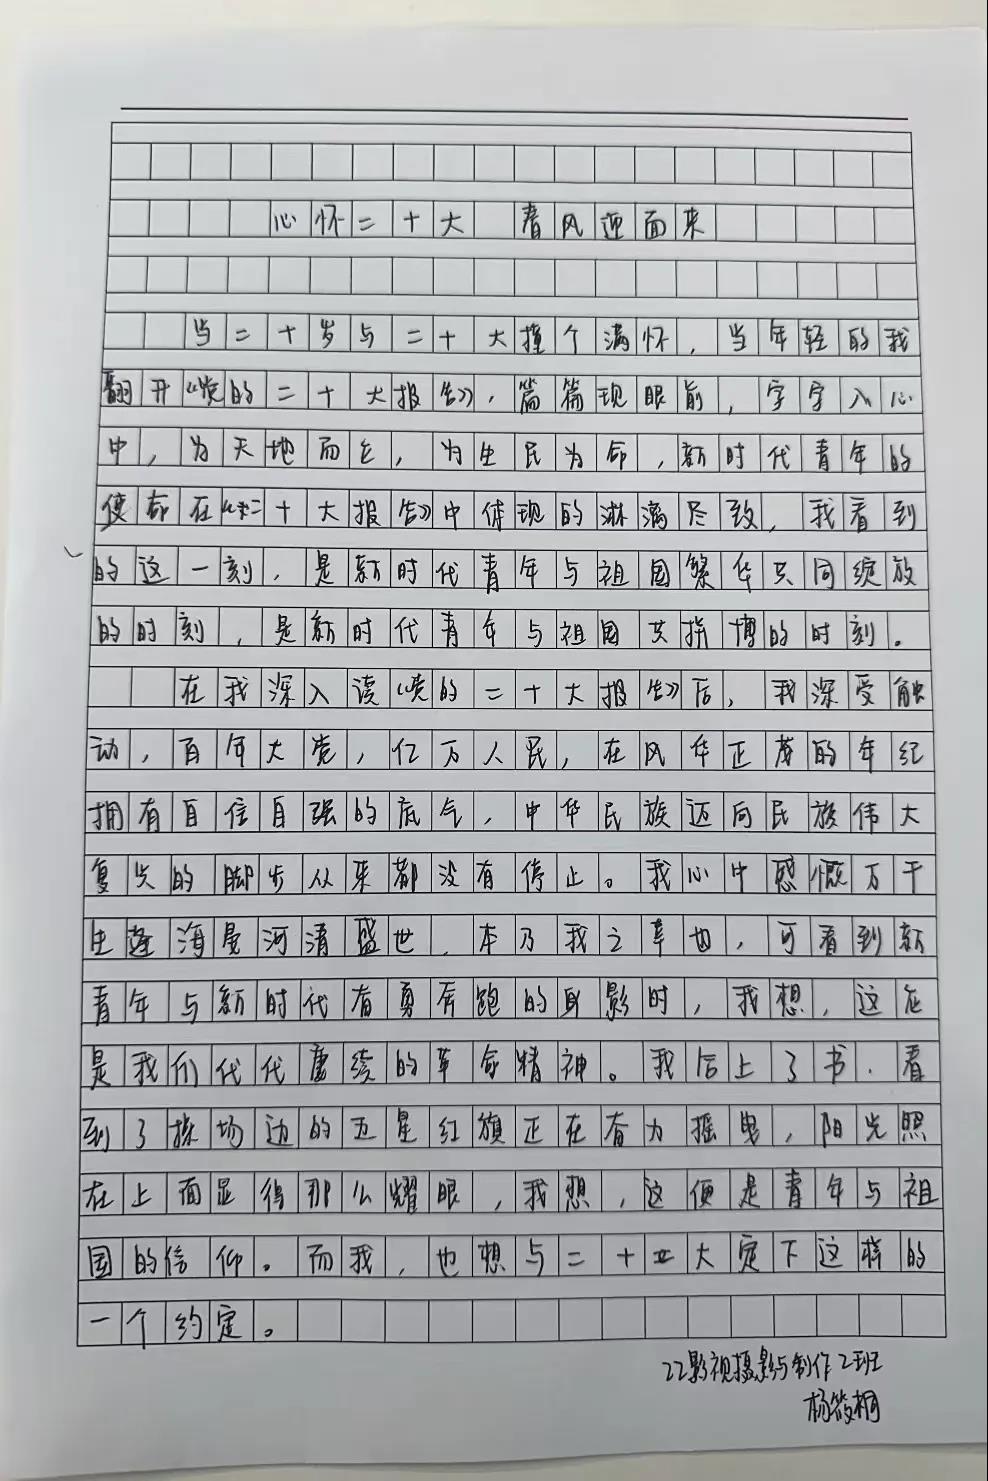 心怀二十大 春风迎面来
当二十岁与二十大撞个满怀，当年轻的我
翻开《党的二十大报告》，篇篇现眼前，字字入心
中，为天地而立，为生民为命，新时代青年的
使命在《二十大报告》中体现的淋漓尽致，我看到
的这一刻，是新时代青年与祖国繁华共同绽放
的时刻，是新时代青年与祖国共拼搏的时刻。
在我深入读《党的二十大报告》后，我深受触
动，百年大党，亿万人民，在风华正茂的年纪
拥有自信自强的底气，中华民族迈向民族伟大
复兴的脚步从来都没有停止。我心中感慨万千
生逢海晏河清盛世，本乃我之幸也，可看到新
青年与新时代奋勇奔跑的身影时，我想，这在
是我们代代赓续的革命精神。我合上了书，看
到了操场边的五星红旗正在奋力摇曳，阳光照
在上面显得那么耀眼，我想，这便是青年与祖
国的信仰。而我，也想与二十大定下这样的
一个约定。
22影视摄影与制作2班
杨筱桐